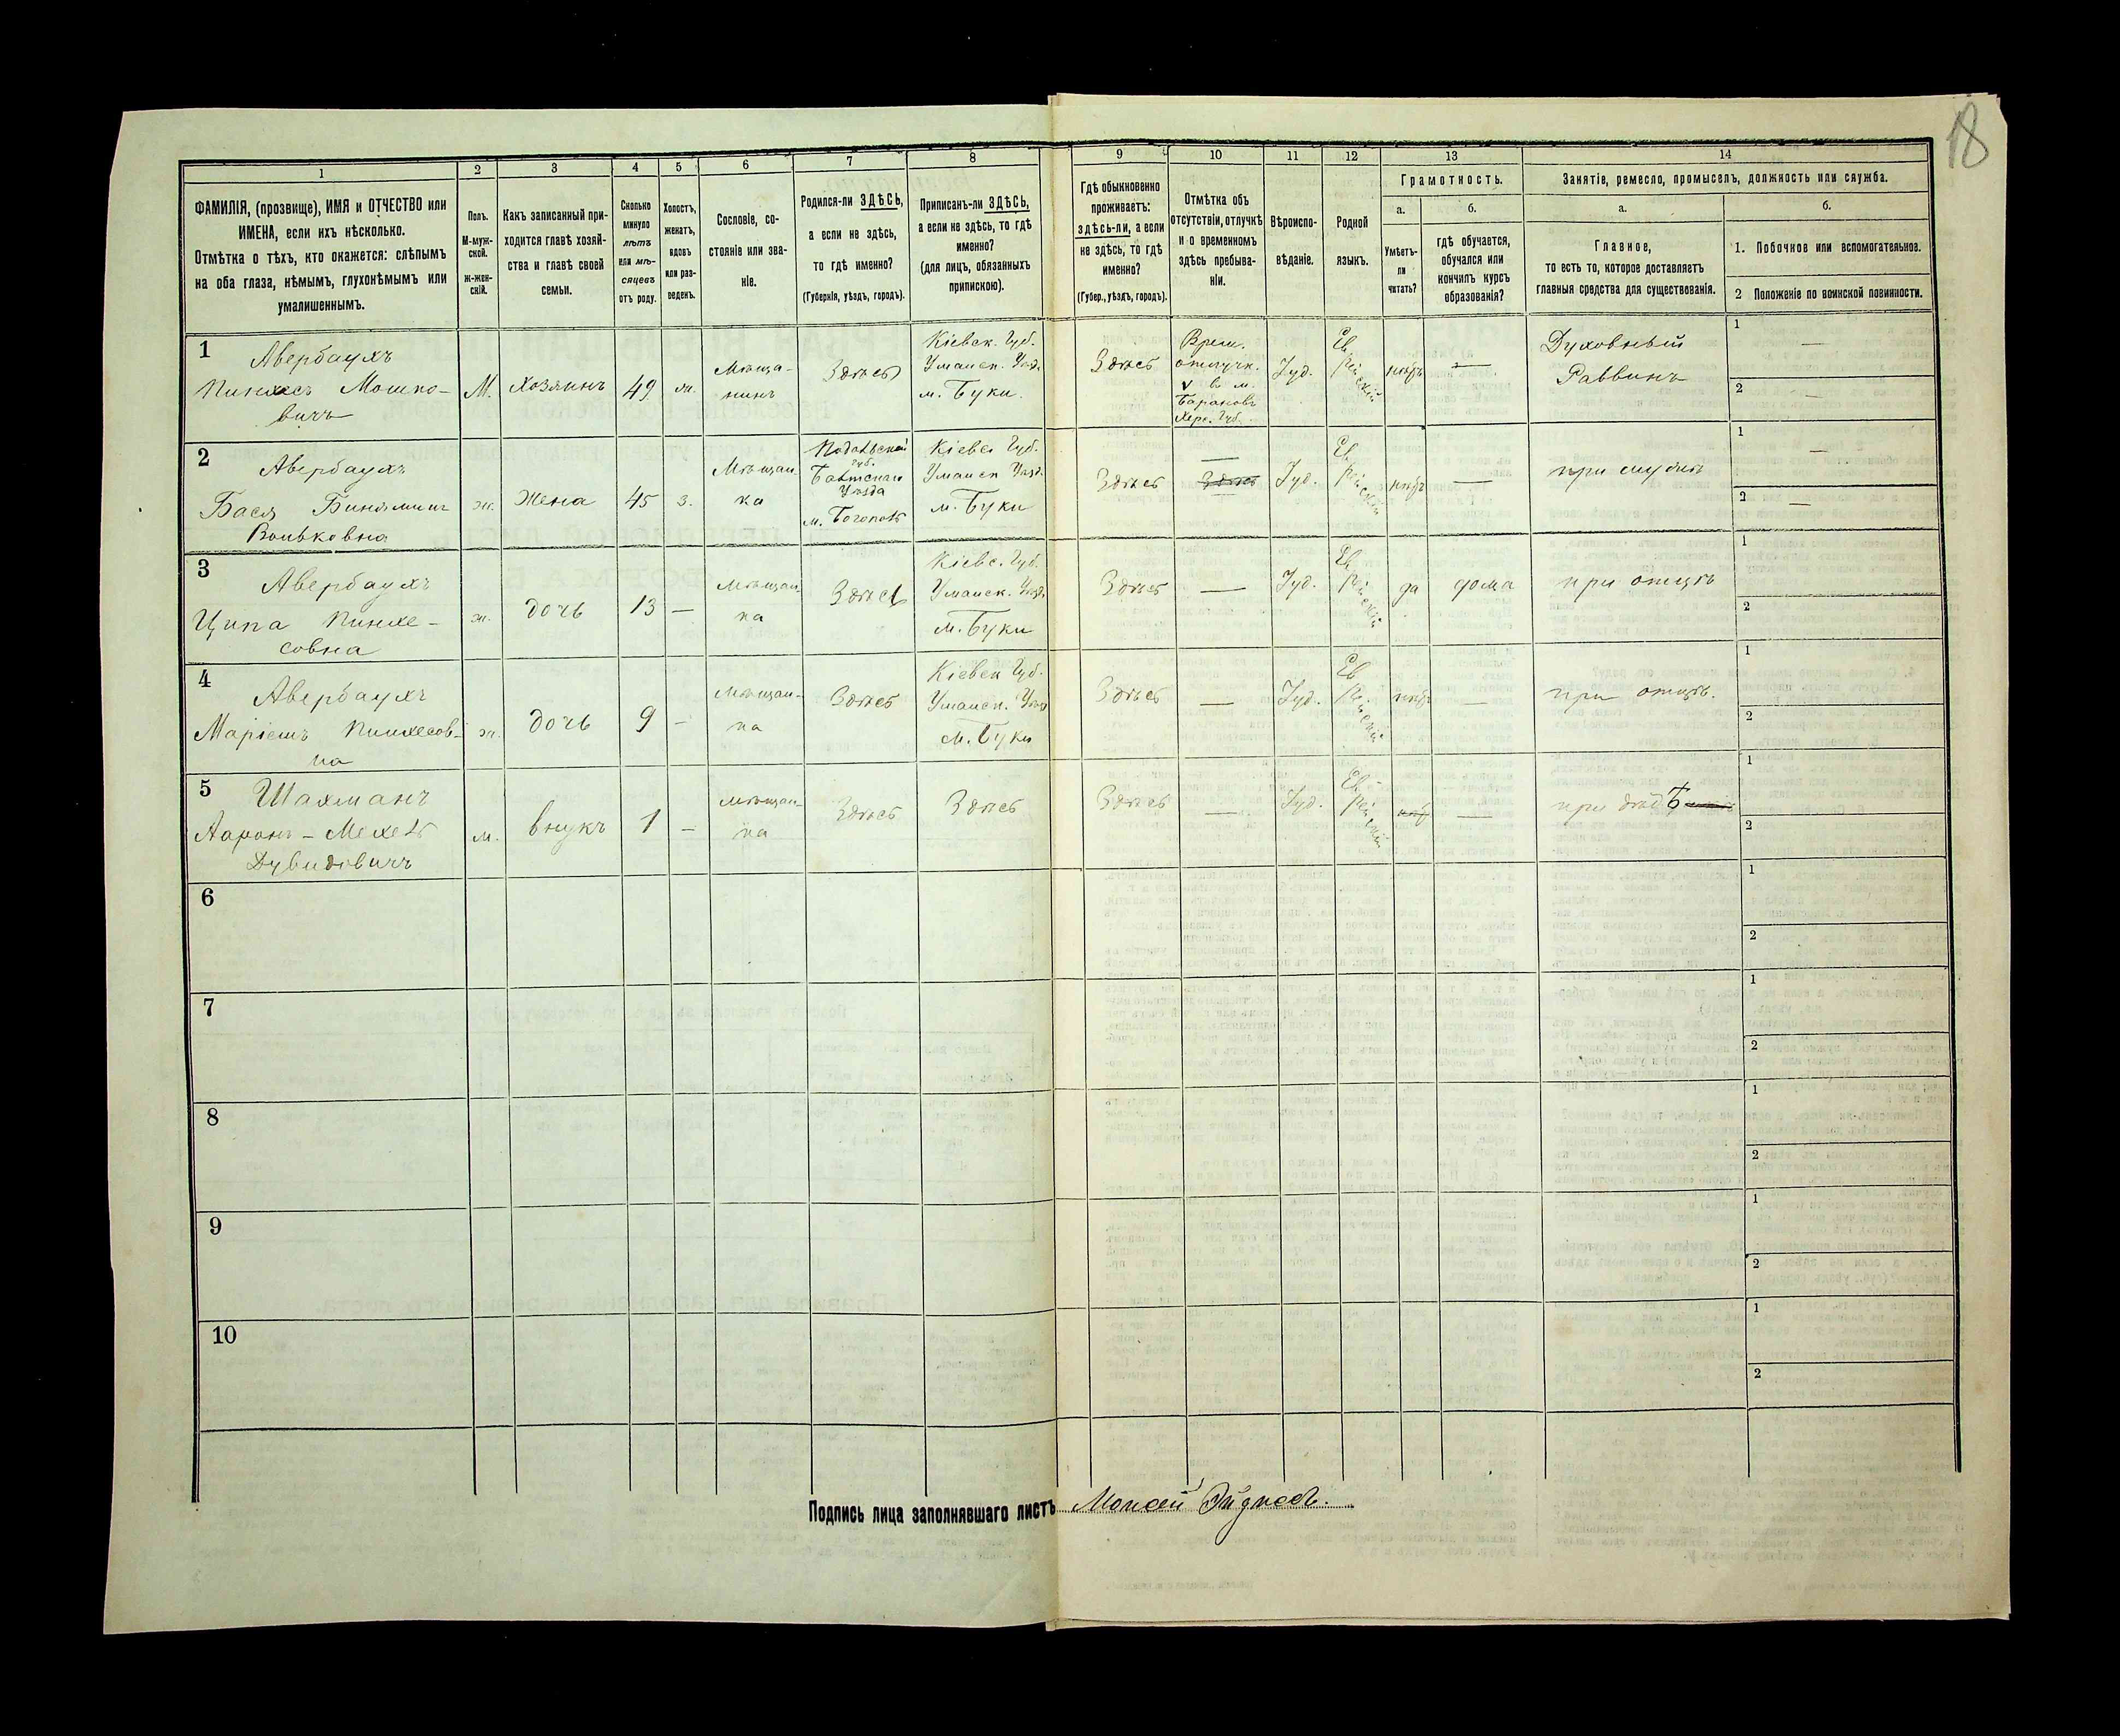 18
1
2
3
4
5
6
7
8
9
10
11
12
13
14
ФАМИЛІЯ, (прозвище), ИМЯ и ОТЧЕСТВО или
ИМЕНА, если ихъ нѣсколько.
Отмѣтка о тѣхъ, кто окажется: слѣпымъ
на оба глаза, нѣмымъ, глухонѣмымъ или
умалишеннымъ.
Полъ.
М-муж-
ской.
ж-жен-
скій.
Какъ записанный при-
ходится главѣ хозяй-
ства и главѣ своей
семьи.
Сколько
минуло
лѣтъ
или мѣ-
сяцевъ
отъ роду.
Холостъ,
женатъ,
вдовъ
или раз-
веденъ.
Сословіе, со-
стояніе или зва-
ніе.
Родился-ли ЗДѢСЬ,
а если не здѣсь,
то гдѣ именно?
(Губернія, уѣздъ, городъ).
Приписанъ-ли ЗДѢСЬ,
а если не здѣсь, то гдѣ
именно?
(для лицъ, обязанныхъ
припискою).
Гдѣ обыкновенно
проживаетъ:
здѣсь-ли, а если
не здѣсь, то гдѣ
именно?
(Губер., уѣздъ, городъ).
Отмѣтка объ
отсутствіи, отлучкѣ
и о временномъ
здѣсь пребыва-
ніи.
Вѣроиспо-
вѣданіе.
Родной
языкъ.
Грамотность.
а.
Умѣетъ-
ли
читать?
б.
гдѣ обучается,
обучался или
кончилъ курсъ
образованія?
Занятіе, ремесло, промыселъ, должность или служба.
а.
Главное,
то есть то, которое доставляетъ
главныя средства для существованія.
б.
1. Побочное или вспомогательное.
2 Положеніе по воинской повинности.
1
Авербаухъ
Пинхесъ Мошко-
вичъ
М.
хозяинъ
49
ж.
Мѣща-
нинъ
Здѣсь
Кіевск. Губ.
Уманск. Уѣзд.
м. Буки.
Здѣсь
Врем.
отлучк.
v в м.
Барановъ
Херс. Губ.
Іуд.
Ев
рейскій
нѣтъ
—
Духовный
Раввинъ
1 —
2 —
2
Авербаухъ
Бася Бинямин
Вольковна
ж.
Жена
45
з.
Мѣщан
ка
Подольской
Губ.
Балтскаго
Уѣзда
м. Богополь
Кіевс Губ.
Уманск Уѣзд.
м. Буки
Здѣсь
—
Здѣсь
Іуд.
Ев
рейскій
нѣтъ
—
при мужѣ
1 —
2 —
3
Авербаухъ
Ципа Пинхе-
совна
ж.
дочь
13
—
мѣщан
ка
Здѣсь
Кіевс. Губ.
Уманск. Уѣзд.
м. Буки
Здѣсь
—
Іуд.
Ев
рейскій
да
дома
при отцѣ
1
2
4
Авербаухъ
Маріемъ Пинхесов-
на
ж.
дочь
9
—
мѣщан-
ка
Здѣсь
Кіевск Губ.
Уманск. Уѣзд
м. Буки
Здѣсь
—
Іуд.
Ев
рейскій
нѣтъ
—
при отцѣ.
1
2
5
Шахманъ
Ааронъ-Мехель
Дувидовичъ
м.
внукъ
1
—
мѣщан-
ка
Здѣсь
Здѣсь
Здѣсь
—
Іуд.
Ев
рейскій
нѣт
—
при дѣдѣ
1
2
6
1
2
7
1
2
8
1
2
9
1
2
10
1
2
Подпись лица заполнявшаго листъ